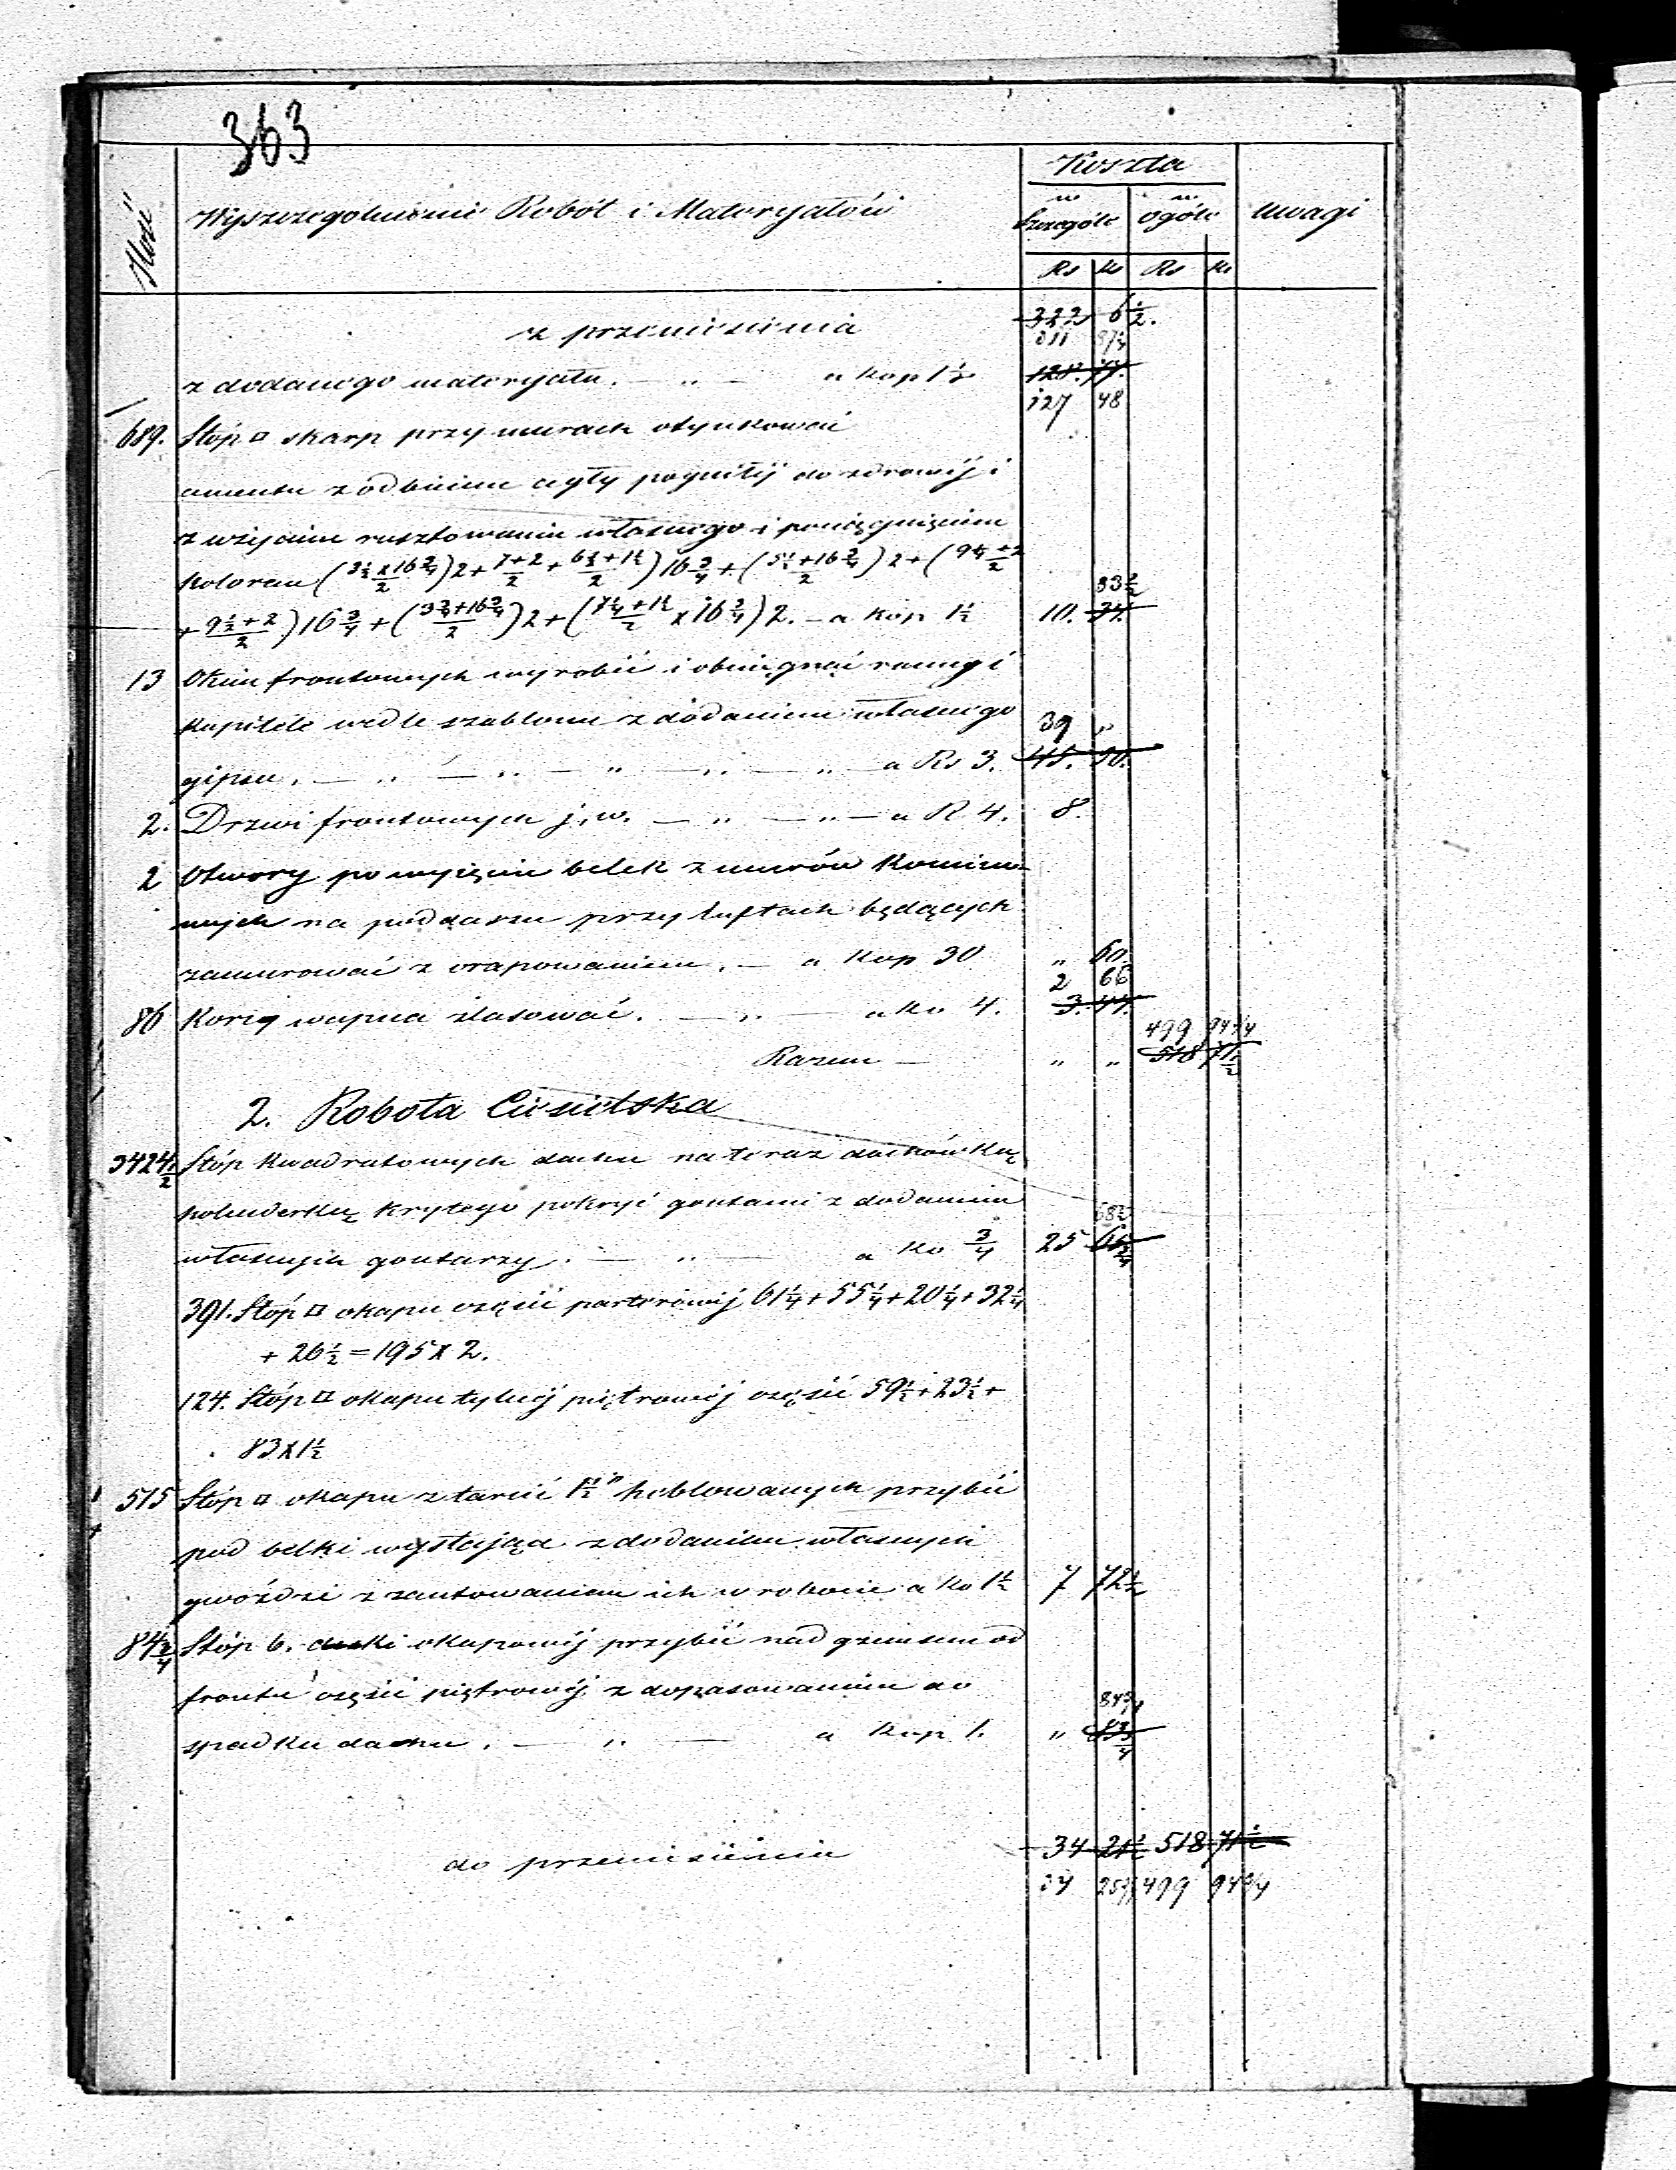 363
Ilość
Wyszczególnienie Robót i Materyałów
Koszta
w Szczególe
w ogóle
Uwagi
Rs K Rs K
z przeniesienia 322 6½.
311 87¼
z dodanego materyału. — „ — a kop 1½ 128. 77.
127 48
689. Stóp □ skarp przy murach otynkować
cementu z odbiciem cegły pogniłej do zdrowej i
z użyciem rusztowania własnego i pociągnięciem
kolorem
a kop 1½ 10. 34.
33½
13 Okien frontowych wyrobić i obciągnąć ramy i
kapitele wedle szablonu z dodaniem własnego
39 „
gipsu. — „ — „ — „ — „ — „ — a Rs 3. 45. 50.
2. Drzwi frontowych j. w. — „ — „ — a R 4. 8.
2 Otwory po wyjęciu belek z murów komino-
wych na poddaszu przy luftach będących
zamurować z orapowaniem. — a Kop 30 „ 60.
2 66
86 Korcy wapna zlasować. — „ — a ko 4. 3. 44.
499 94¾
Razem — „ „ 518 71½
2. Robota Ciesielska
3424½ Stóp kwadratowych dachu na teraz dachówką
holenderką krytego pokryć gontami z dodaniem
68½
własnych gontarzy. — „ — a ko ¾ 25
391. Stóp □ okapu części parterowéj 61¼ + 55¼ + 20¼ + 32¼
+ 26½ = 195 x 2.
124. Stóp □ okapu tylnéj piętrowéj części 59½ + 23½ +
83 x 1½
515 Stóp □ okapu z tarcic 1½" heblowanych przybić
pod belki wystające z dodaniem własnych
gwoździ z zantowaniem ich w robocie a ko 1½ 7 72½
84¾ Stóp b. deski okapowéj przybić nad gzemsem od
frontu części piętrowéj z dopasowaniem do
84¾
spadku dachu. — „ — a Kop 1. „ 83¾
do przeniesienia 34 21½ 518 71½
34 25¾ 499 94¾